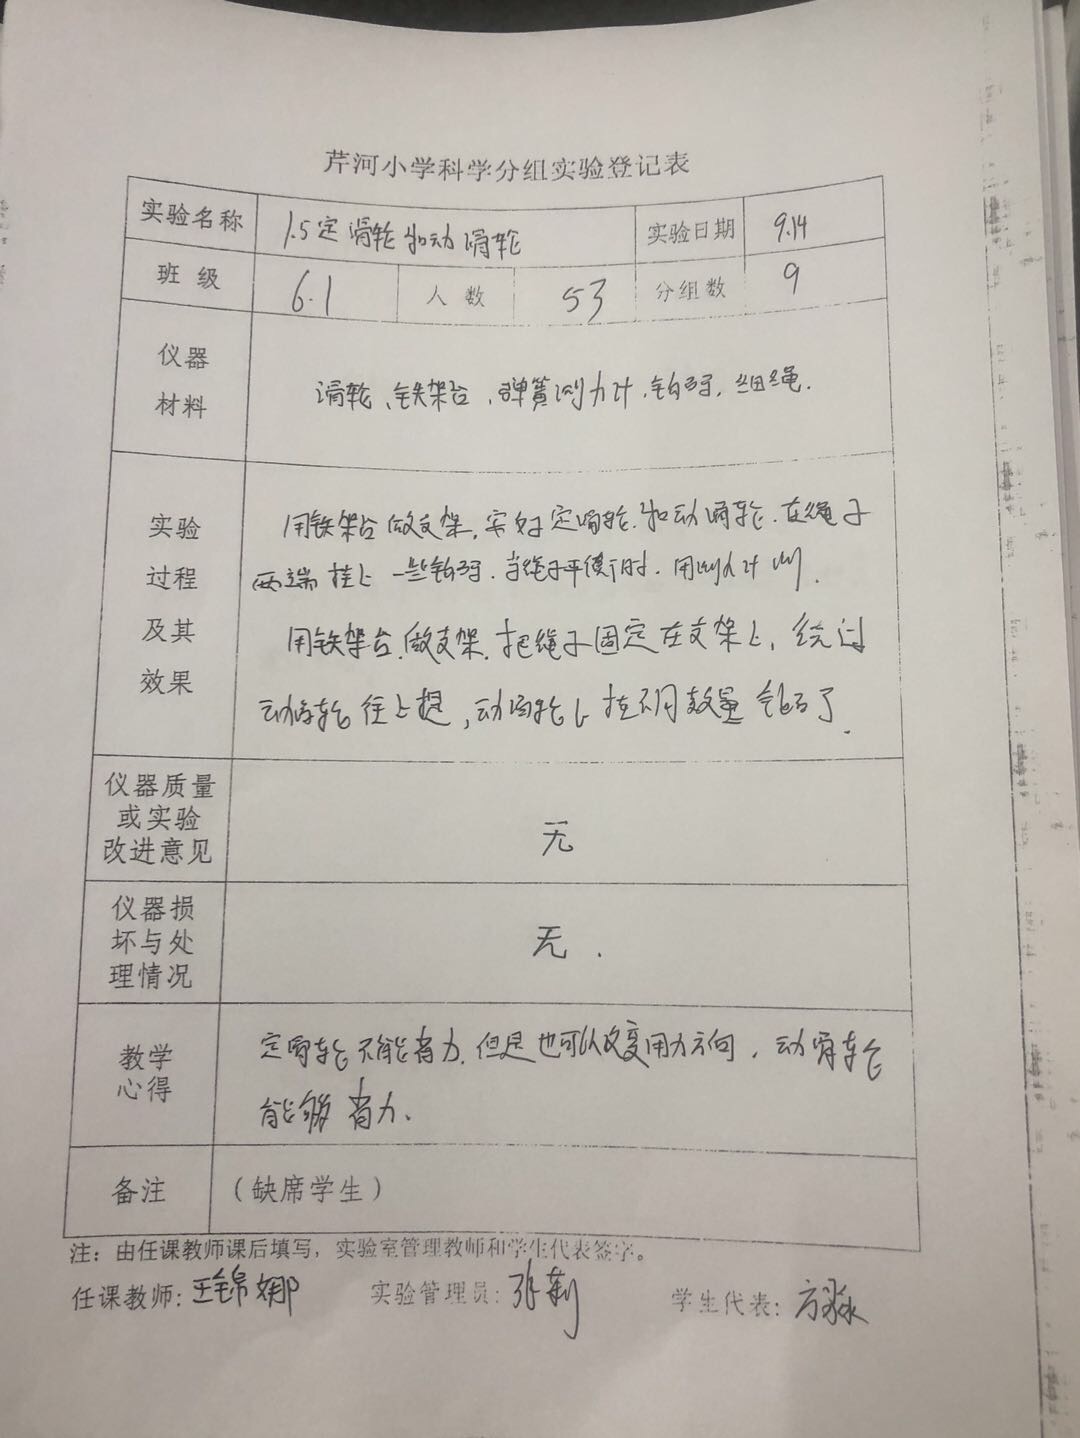 芹河小学科学分组实验登记表
实验名称 1.5定滑轮和动滑轮 实验日期 9.14
班级 6.1 人数 53 分组数 9
仪器
材料
滑轮、铁架台、弹簧测力计、钩码、细绳.
实验
过程
及其
效果
用铁架台做支架,安好定滑轮.和动滑轮.在绳子
两端挂上一些钩码.当绳子平衡时.用测力计测.
用铁架台.做支架.把绳子固定在支架上,绕过
动滑轮往上提,动滑轮上挂不同数量钩码了.
仪器质量
或实验
改进意见
无
仪器损
坏与处
理情况
无.
教学
心得
定滑轮不能省力.但是也可以改变用力方向,动滑轮
能够省力.
备注 (缺席学生)
注:由任课教师课后填写,实验室管理教师和学生代表签字。
任课教师:王锦娜 实验管理员:张莉 学生代表:方淼